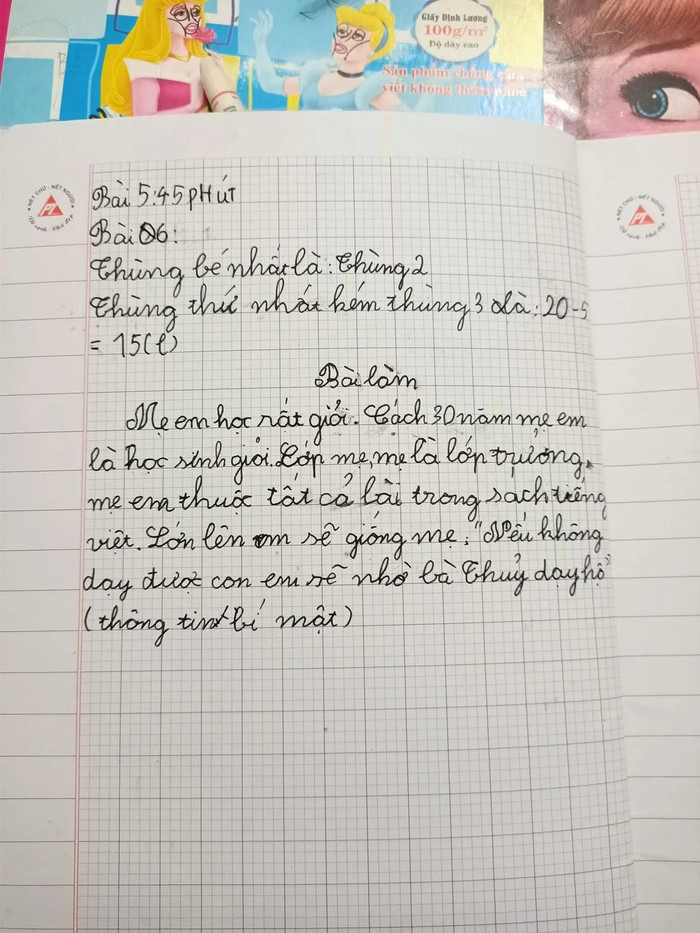 Giấy Định Lượng
100g/m²
Độ dày cao
Sản phẩm chống
viết không thấm
NÉT CHỮ - NẾT NGƯỜI
PT
NÉT CHỮ - NẾT NGƯỜI
PT
Bài 5:45 pHút
Bài 06:
Thùng bé nhất là: Thùng 2
Thùng thứ nhất kém thùng 3 là: 20-5
= 15(l)
Bài làm
Mẹ em học rất giỏi. Cách 30 năm mẹ em
là học sinh giỏi. Lớp mẹ, mẹ là lớp trưởng,
mẹ em thuộc tất cả bài trong sach tiếng
việt. Lớn lên em sẽ giống mẹ, "Nếu không
dạy được con em sẽ nhờ bà Thuỷ dạy hộ"
(thông tin bí mật)